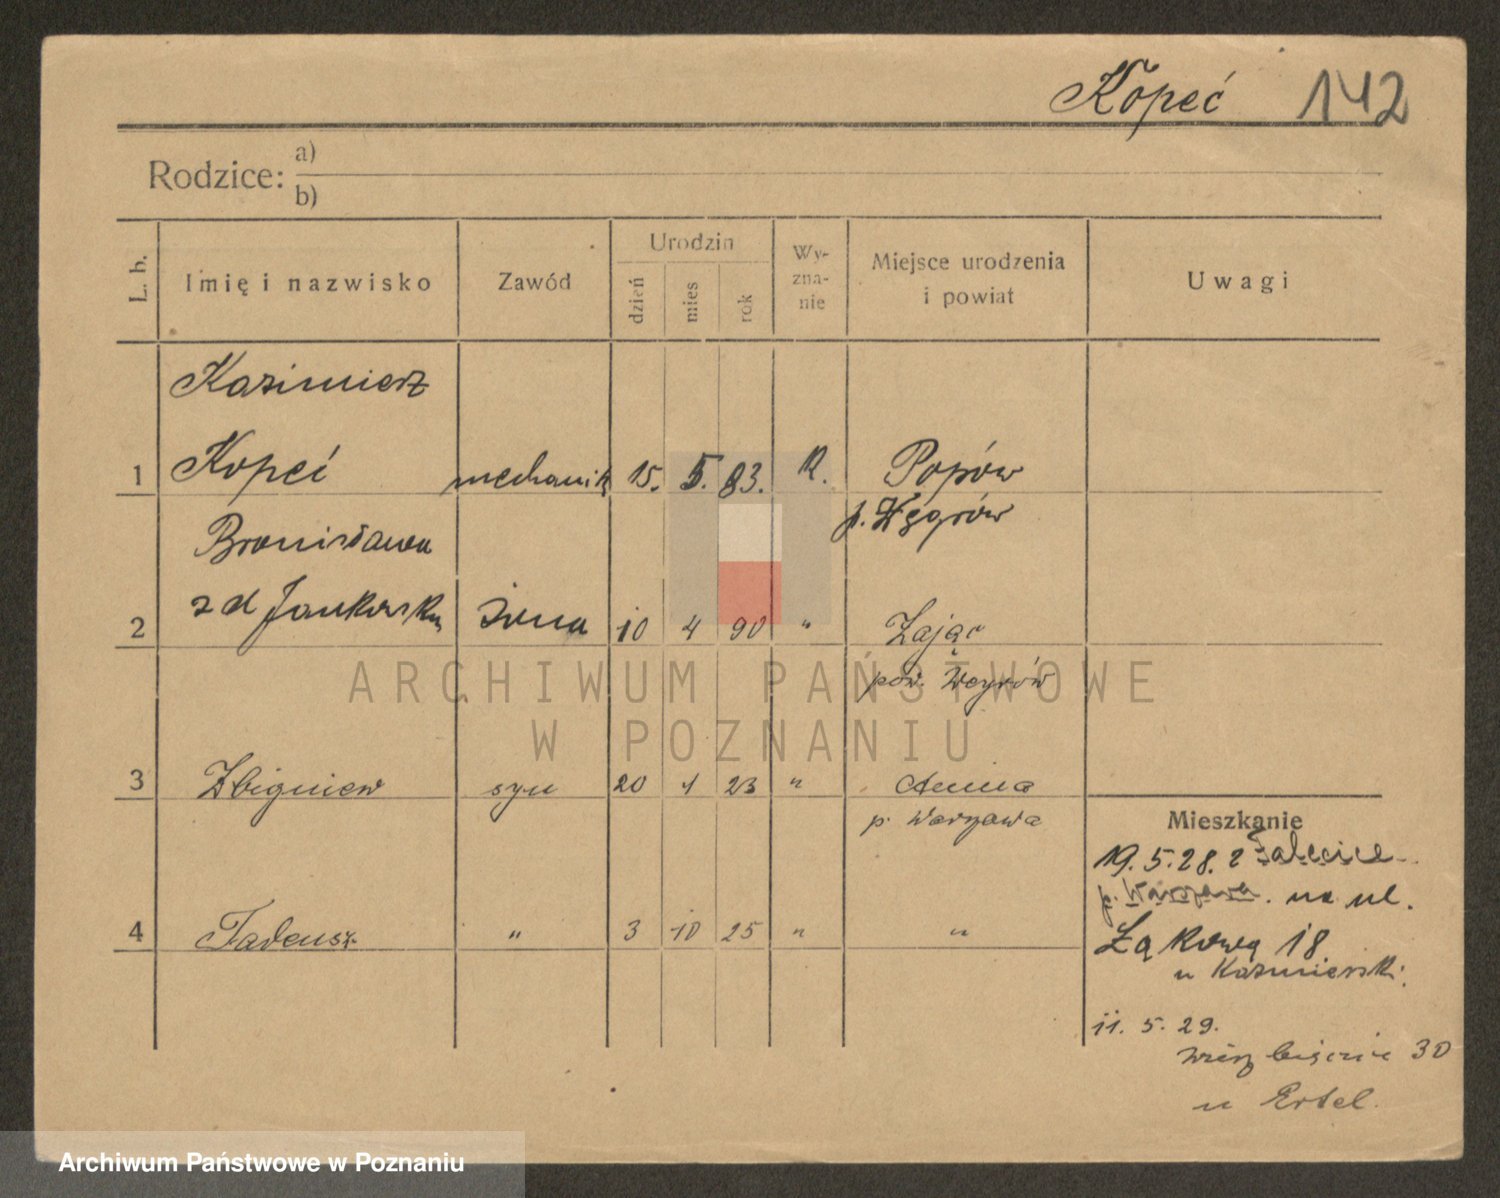 Kopeć 142
Rodzice: a)
b)
L. b. Imię i nazwisko Zawód Urodzin dzień mies rok Wy-zna-nie Miejsce urodzenia i powiat Uwagi
Kazimierz
1 Kopeć mechanik 15. 5. 83. R. Popów
p. Węgrów
Bronisława
2 z d Jankowska żona 10 4 90 " Zając
pow. Węgrów
3 Zbigniew syn 20 1 23 "
p. Warszawa
4 Tadeusz " 3 10 25 " "
Mieszkanie
19.5.28. z
p. Warszawa. na ul.
Łąkową 18
u Kazmierski.
11. 5. 29.
30
u Ertel.
ARCHIWUM PAŃSTWOWE
W POZNANIU
Archiwum Państwowe w Poznaniu